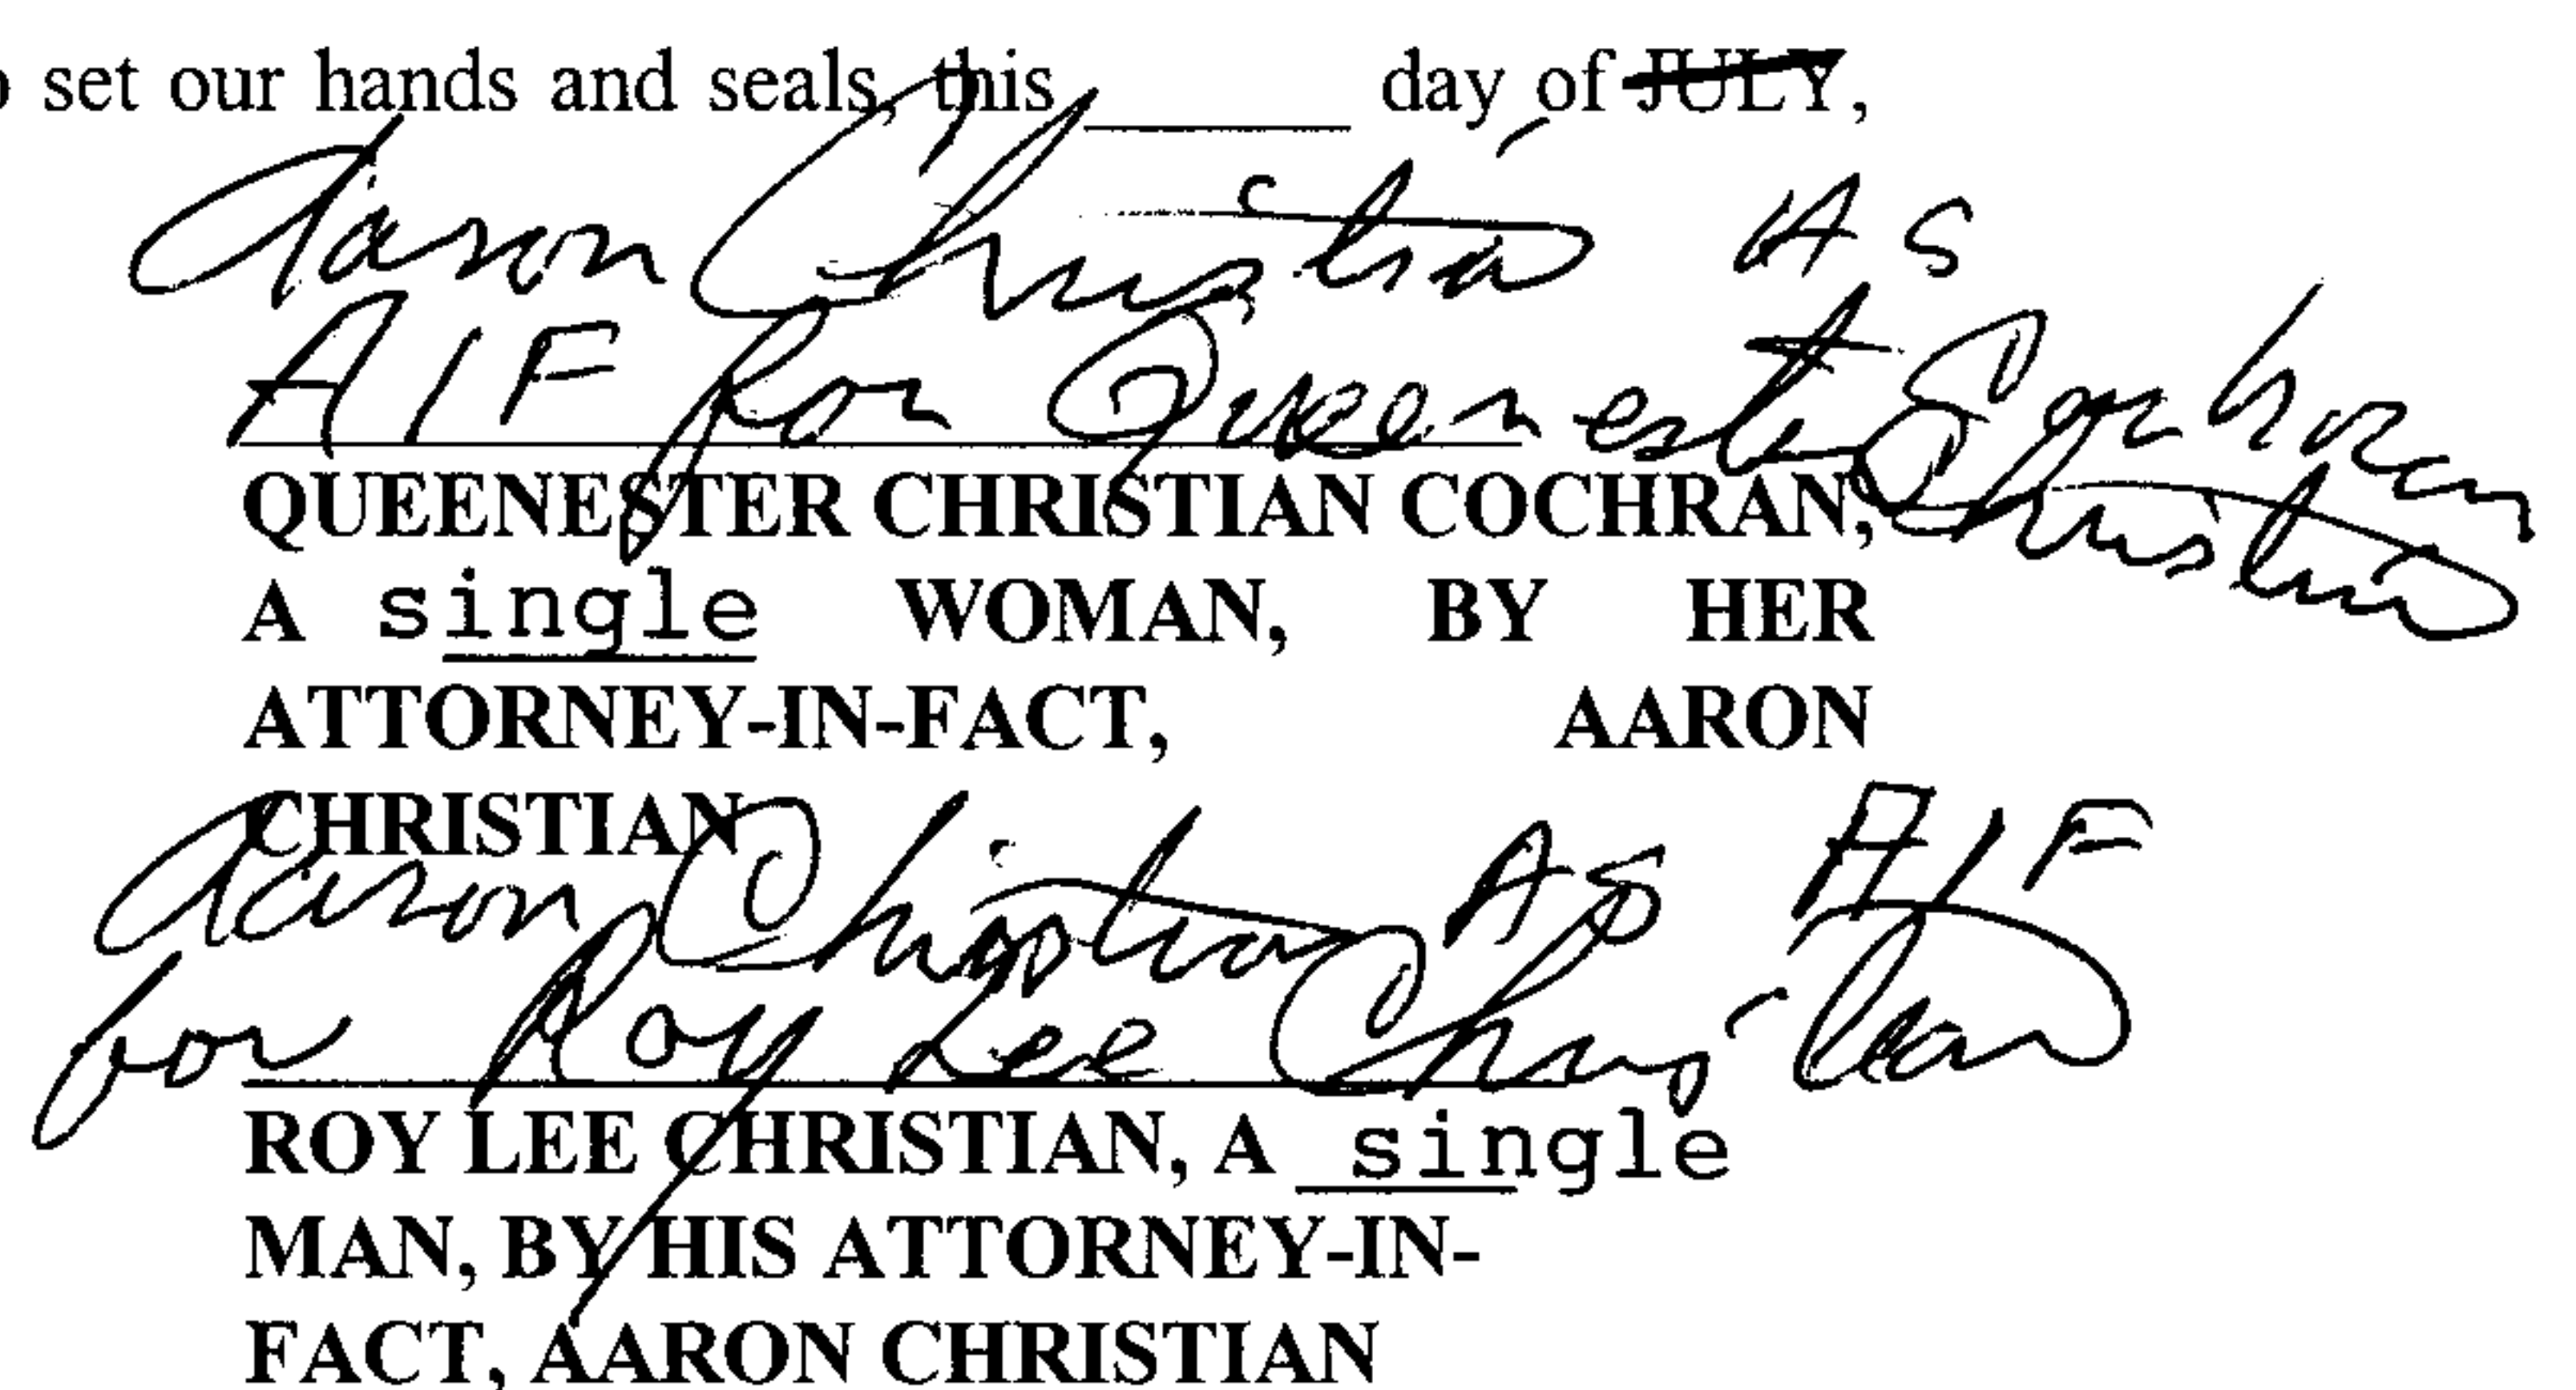 o set our hands and seals, this ______ day of JULY,
Aaron Christian AS
AIF for Queenester Cochran
Christian
QUEENESTER CHRISTIAN COCHRAN,
A single WOMAN, BY HER
ATTORNEY-IN-FACT, AARON
CHRISTIAN
Aaron Christian AS AIF
for Roy Lee Christian
ROY LEE CHRISTIAN, A single
MAN, BY HIS ATTORNEY-IN-
FACT, AARON CHRISTIAN